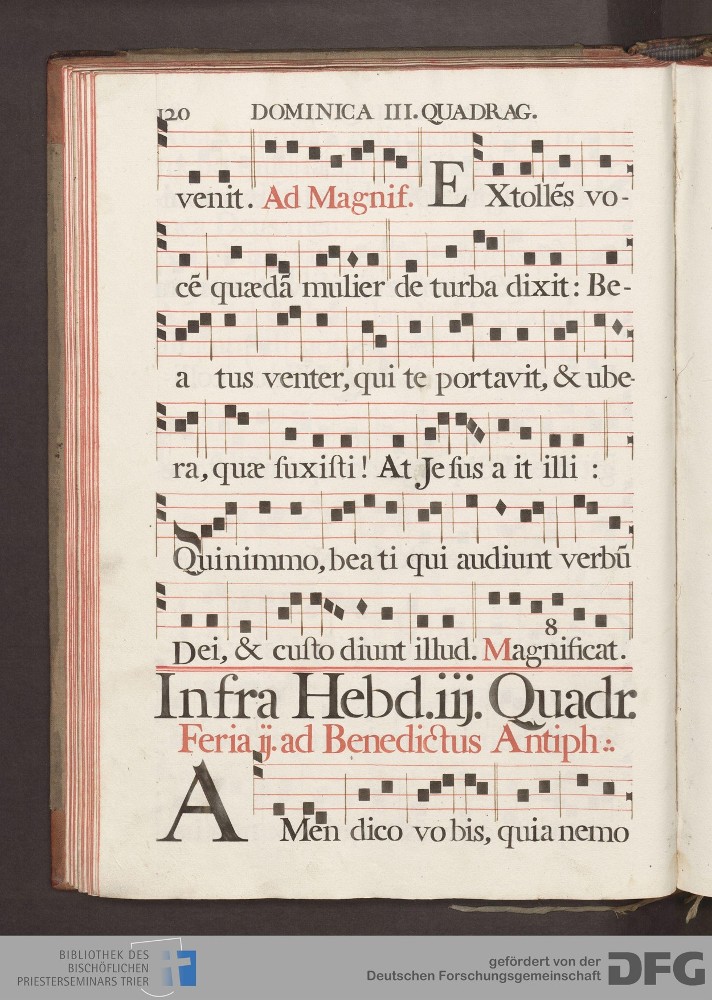 120 DOMINICA III. QUADRAG.
venit. Ad Magnif. EXtollẽs vo-
cẽ quædã mulier de turba dixit: Be-
a tus venter, qui te portavit, & ube-
ra, quæ ſuxiſti! At Jeſus a it illi :
Quinimmo, bea ti qui audiunt verbũ
8
Dei, & cuſto diunt illud. Magnificat.
Infra Hebd. iij. Quadr.
Feria ij. ad Benedictus Antiph :.
AMen dico vo bis, quia nemo
BIBLIOTHEK DES
BISCHÖFLICHEN
PRIESTERSEMINARS TRIER
gefördert von der
Deutschen Forschungsgemeinschaft
DFG